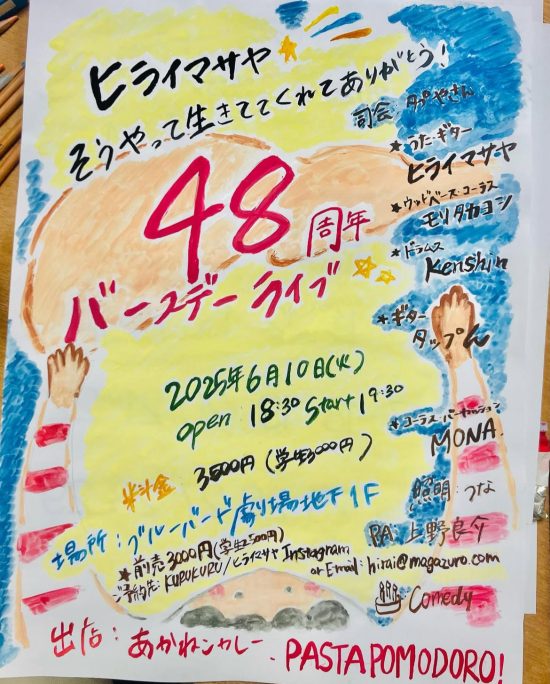 ヒライマサヤ
そうやって生きててくれてありがとう!
48周年
バースデーライブ
2025年6月10日(火)
open 18:30 Start 19:30
料金 3500円(学生3000円)
場所:ブルーバード劇場地下1F
*前売3000円(学生2500円)
ご予約先:KURUKURU/ヒライマサヤ Instagram
or Email:hirai@magazuro.com
司会:タップやさん
★うた・ギター
ヒライマサヤ
★ウッドベース・コーラス
モリタカヨシ
★ドラムス
Kenshin
★ギター
タップくん
★コーラス・パーカッション
MONA.
照明:つな
PA:上野良介
Comedy
出店:あかねンカレー、PASTAPOMODORO!